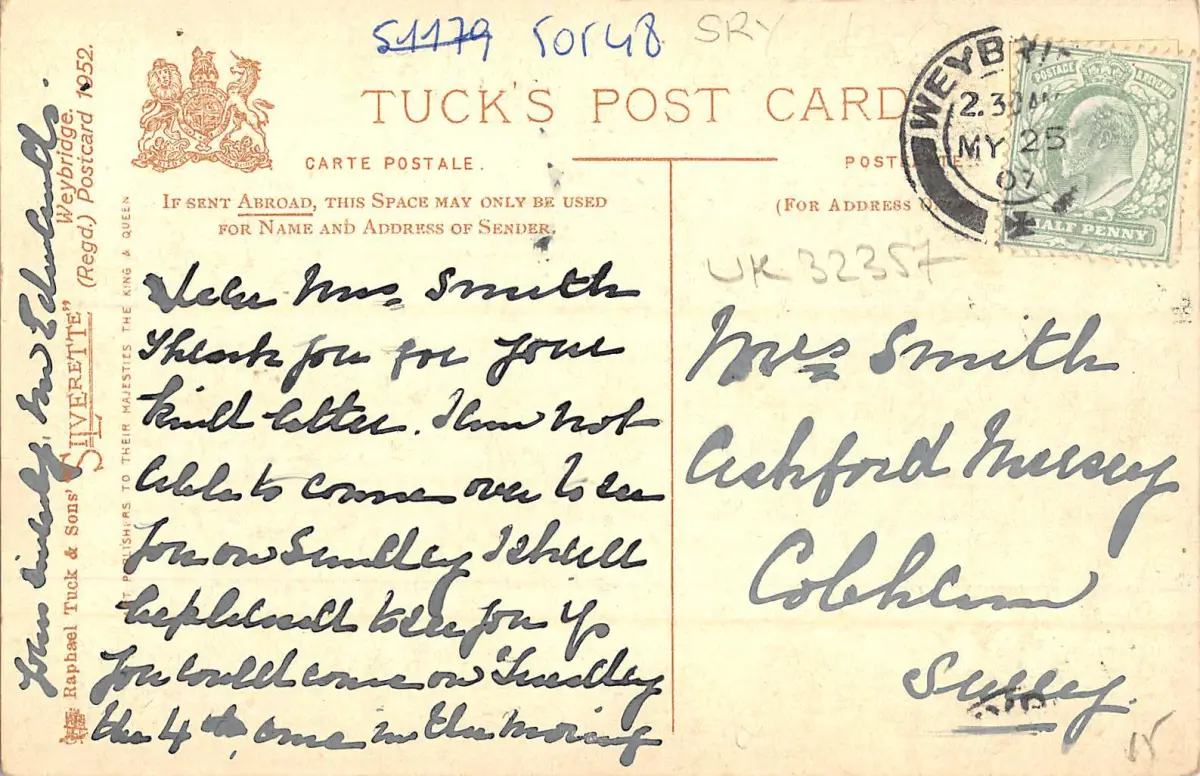 S1179 50548 SRY
TUCK'S POST CARD
CARTE POSTALE.
POST
IF SENT ABROAD, THIS SPACE MAY ONLY BE USED
FOR NAME AND ADDRESS OF SENDER.
(FOR ADDRESS ONLY
WEYBRI
2.30AM
MY 25
07
POSTAGE REVENUE
HALF PENNY
UK 32357
Dear Mrs Smith
Thank you for your
kind letter. I am not
able to come over to see
you on Sunday I shall
be pleased to see you if
you could come on Tuesday
the 4th, come in the morning
yours sincerely, Mr Edmunds.
Mrs Smith
Ashford Nursery
Cobham
Surrey.
15
Raphael Tuck & Sons' "SILVERETTE" Weybridge.
(Regd.) Postcard 1952.
ART PUBLISHERS TO THEIR MAJESTIES THE KING & QUEEN